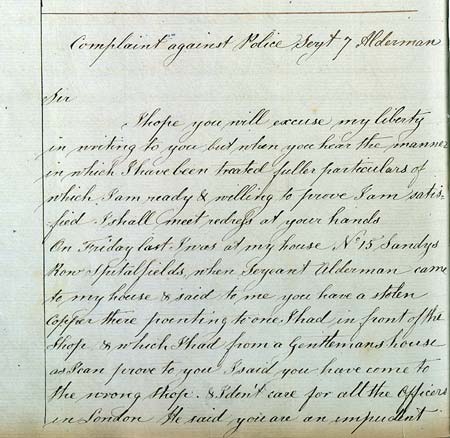 Complaint against Police Sergt 7 Alderman
Sir
I hope you will excuse my liberty
in writing to you but when you hear the manner
in which I have been treated fuller particulars of
which I am ready & willing to prove I am satis-
fied I shall meet redress at your hands
On Friday last I was at my house No 15 Sandys
Row Spitalfields, when Serjeant Alderman came
to my house & said to me you have a stolen
Copper there pointing to one I had in front of the
Shop & which I had from a Gentlemans house
as I can prove to you I said you have come to
the wrong Shop & I dont care for all the Officers
in London He said you are an impudent